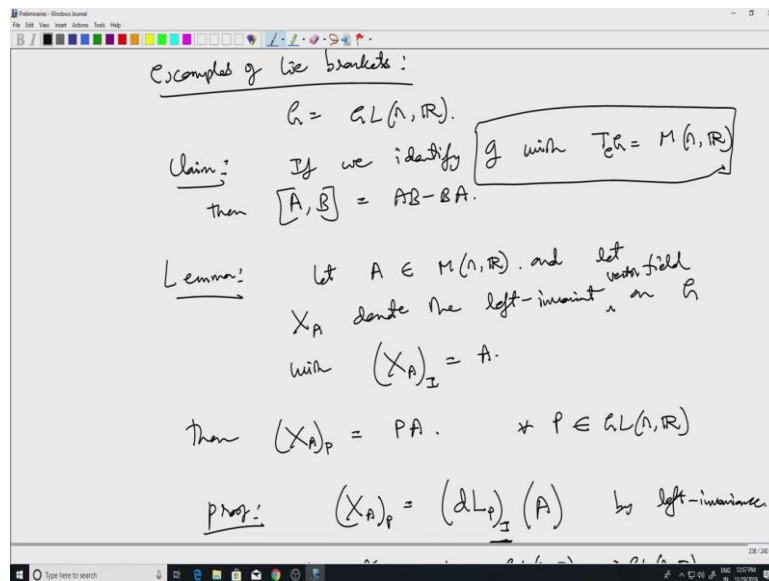 Preliminaries - Windows Journal
File Edit View Insert Actions Tools Help
Examples of Lie brackets:
G = GL(n, ℝ).
Claim: If we identify g with TₑG = M(n, ℝ)
then [A, B] = AB - BA.
Lemma: Let A ∈ M(n, ℝ). and let
X_A denote the left-invariant vector field on G
with (X_A)_I = A.
Then (X_A)_P = PA. ∀ P ∈ GL(n, ℝ)
Proof: (X_A)_P = (dL_P)_I (A) by left-invariance.
238 / 240
Type here to search
ENG 12:57 PM
IN 11/19/2019